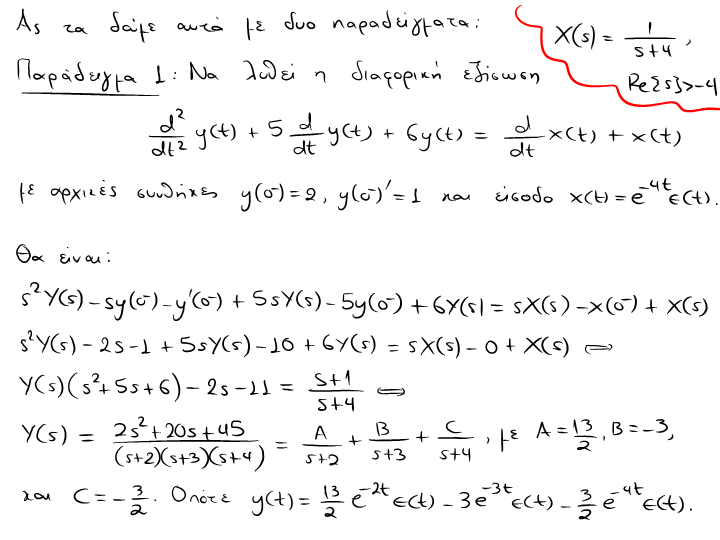 Ας τα δούμε αυτά με δυο παραδείγματα:
X(s) = 1/(s+4),
Re{s}>-4
Παράδειγμα 1: Να λυθεί η διαφορική εξίσωση
d²/dt² y(t) + 5 d/dt y(t) + 6y(t) = d/dt x(t) + x(t)
με αρχικές συνθήκες y(0⁻)=2, y(0⁻)'=1 και είσοδο x(t)=e^{-4t}ε(t).
Θα είναι:
s²Y(s) - sy(0⁻) - y'(0⁻) + 5sY(s) - 5y(0⁻) + 6Y(s) = sX(s) - x(0⁻) + X(s)
s²Y(s) - 2s - 1 + 5sY(s) - 10 + 6Y(s) = sX(s) - 0 + X(s) ⟺
Y(s)(s²+5s+6) - 2s - 11 = (s+1)/(s+4) ⟺
Y(s) = (2s²+20s+45)/((s+2)(s+3)(s+4)) = A/(s+2) + B/(s+3) + C/(s+4), με A=13/2, B=-3,
και C=-3/2. Οπότε y(t) = 13/2 e^{-2t}ε(t) - 3e^{-3t}ε(t) - 3/2 e^{-4t}ε(t).